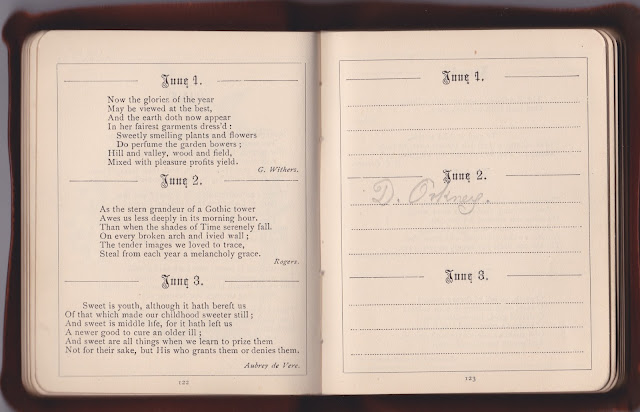 June 1.
Now the glories of the year
May be viewed at the best,
And the earth doth now appear
In her fairest garments dress'd :
Sweetly smelling plants and flowers
Do perfume the garden bowers ;
Hill and valley, wood and field,
Mixed with pleasure profits yield.
G. Withers.
June 2.
As the stern grandeur of a Gothic tower
Awes us less deeply in its morning hour.
Than when the shades of Time serenely fall.
On every broken arch and ivied wall ;
The tender images we loved to trace,
Steal from each year a melancholy grace.
Rogers.
June 3.
Sweet is youth, although it hath bereft us
Of that which made our childhood sweeter still ;
And sweet is middle life, for it hath left us
A newer good to cure an older ill ;
And sweet are all things when we learn to prize them
Not for their sake, but His who grants them or denies them.
Aubrey de Vere.
122
June 1.
June 2.
D. Orkney.
June 3.
123